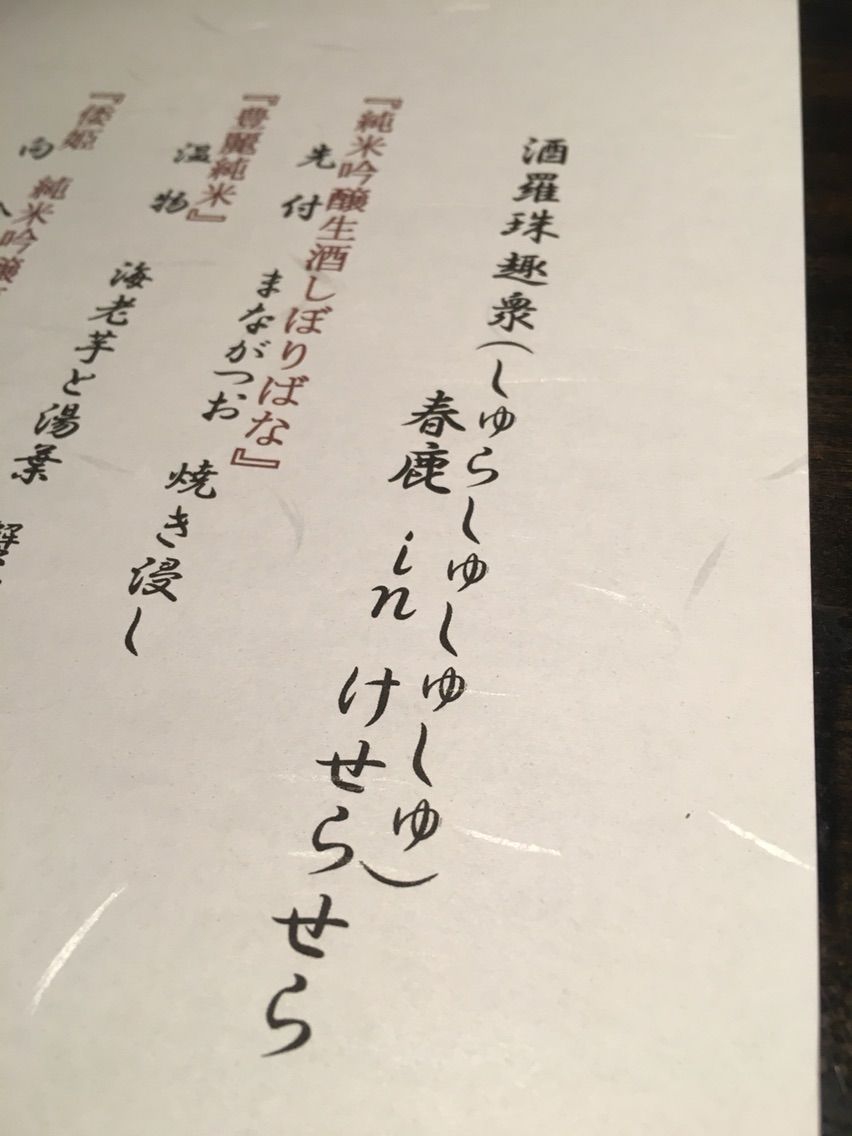 酒羅珠趣衆(しゅらしゅしゅしゅ)
春鹿 in けせらせら
『純米吟醸生酒しぼりばな』
先付 まながつお 焼き浸し
『豊麗純米』
温物 海老芋と湯葉
『倭姫 純米吟醸
向